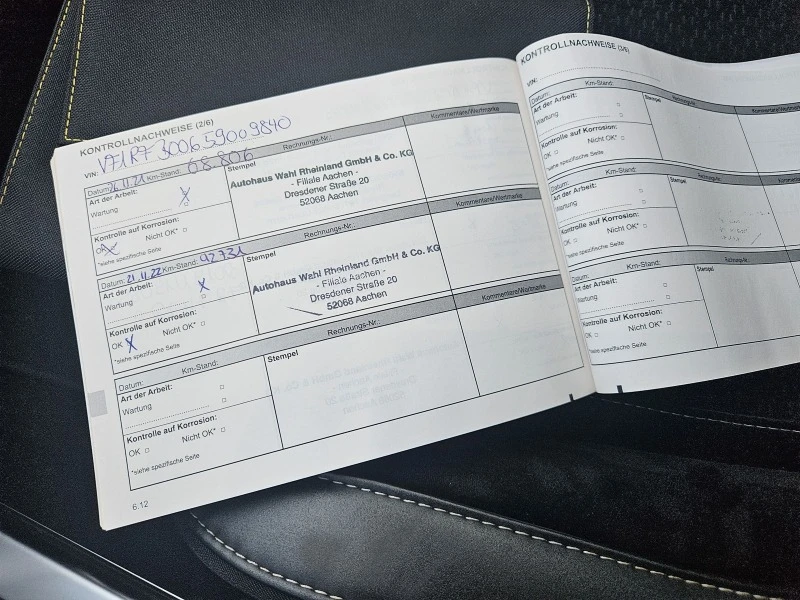 KONTROLLNACHWEISE (2/6)
VIN:
Datum: Km-Stand: 68.806 Rechnungs-Nr.: Kommentare/Wertmarke
Art der Arbeit: Stempel
Wartung X
Autohaus Wahl Rheinland GmbH & Co. KG
- Filiale Aachen -
Dresdener Straße 20
52068 Aachen
Kontrolle auf Korrosion:
OK X Nicht OK*
*siehe spezifische Seite
Datum: 21.11.22 Km-Stand: 92731 Rechnungs-Nr.: Kommentare/Wertmarke
Art der Arbeit: X Stempel
Wartung
Autohaus Wahl Rheinland GmbH & Co. KG
- Filiale Aachen -
Dresdener Straße 20
52068 Aachen
Kontrolle auf Korrosion:
OK X Nicht OK*
*siehe spezifische Seite
Datum: Km-Stand: Rechnungs-Nr.: Kommentare/Wertmarke
Art der Arbeit: Stempel
Wartung
Kontrolle auf Korrosion:
OK Nicht OK*
*siehe spezifische Seite
6.12
KONTROLLNACHWEISE (3/6)
VIN:
Datum: Km-Stand: Rechnungs-Nr.: Kommentare/Wertmarke
Art der Arbeit: Stempel
Wartung
Kontrolle auf Korrosion:
OK Nicht OK*
*siehe spezifische Seite
Datum: Km-Stand: Rechnungs-Nr.: Kommentare/Wertmarke
Art der Arbeit: Stempel
Wartung
Kontrolle auf Korrosion:
OK Nicht OK*
*siehe spezifische Seite
Datum: Km-Stand: Rechnungs-Nr.:
Art der Arbeit: Stempel
Wartung
Kontrolle auf Korrosion:
OK Nicht OK*
*siehe spezifische Seite